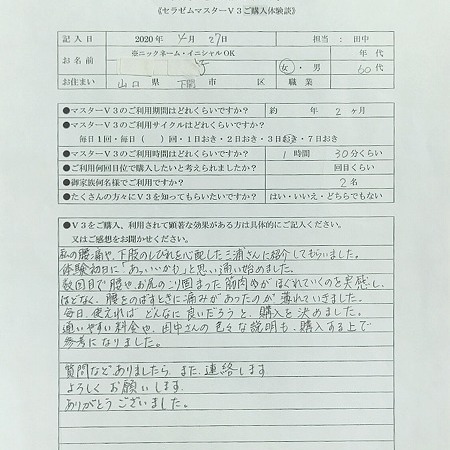 《セラゼムマスターV3ご購入体験談》
記入日 2020年 4月 27日 担当：田中
お名前 ※ニックネーム・イニシャルOK 女・男 年代 60代
お住まい 山口県 下関市 区 職業
●マスターV3のご利用期間はどれくらいですか？ 約 年 2ヶ月
●マスターV3のご利用サイクルはどれくらいですか？
毎日1回・毎日（ ）回・1日おき・2日おき・3日おき・7日おき
●マスターV3のご利用時間はどれくらいですか？ 1時間 30分くらい
●体験何回目位で購入したいと考えられましたか？ 回目くらい
●御家族何名様でご利用ですか？ 2名
●たくさんの方々にV3を知ってもらいたいですか？ はい・いいえ・どちらでもない
●V3をご購入、利用されて顕著な効果がある方は具体的にご記入ください。
又はご感想をお聞かせください。
私の腰痛や、下肢のしびれを心配した三浦さんに紹介してもらいました。
体験初日に「あっ、いいかも」と思い通い始めました。
数回目で腰や、お尻のこり固まった筋肉がほぐれていくのを実感し、
ほどなく、腰をのばすときに痛みがあったのが薄れていきました。
毎日、使えればどんなに良いだろうと、購入を決めました。
通いやすい料金や、田中さんの色々な説明も、購入する上で
参考になりました。
質問などありましたら、また、連絡します。
よろしくお願いします。
ありがとうございました。